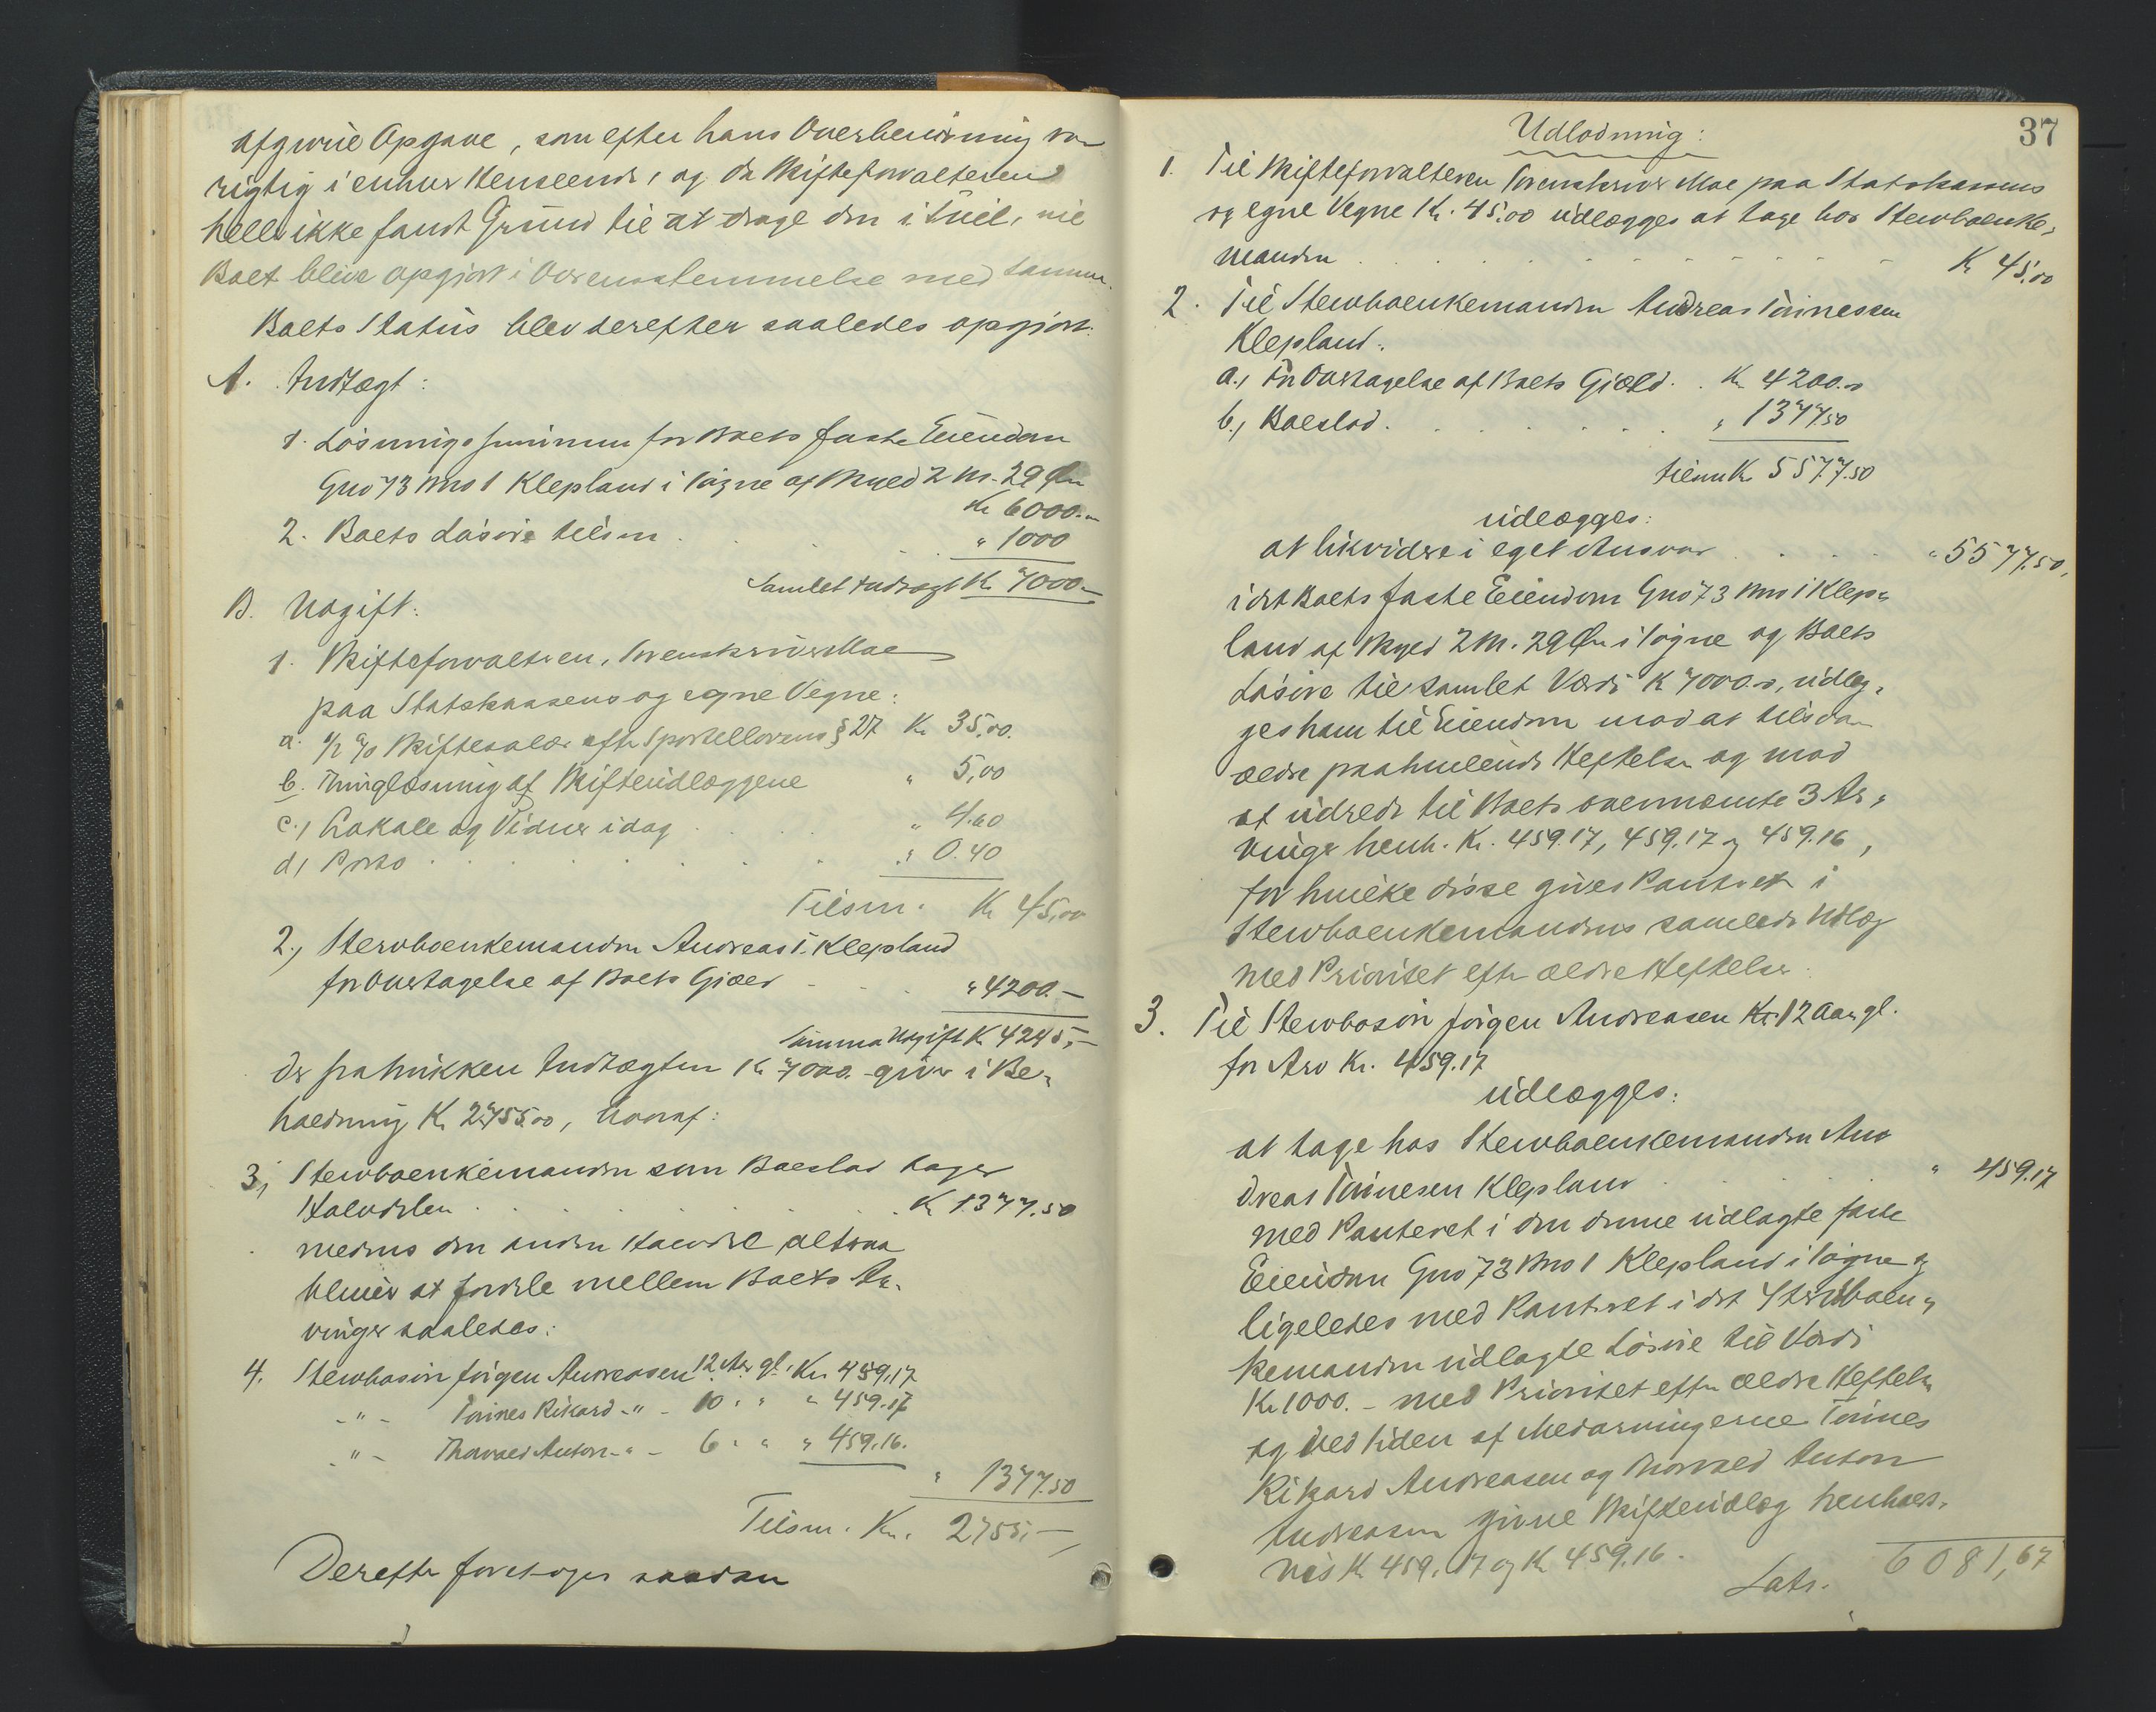 afgivne Opgave, som efter hans Overbevisning var
rigtig i enhver Henseende, og da Skifteforvalteren
heller ikke fandt Grund til at drage den i Tvil, vil
Boet blive opgjort i Overensstemmelse med samme.
Boets Status blev derefter saaledes opgjort:
A. Indtægt:
1. Løsningssummen for Boets faste Eiendom
Gno 73 Bno 1 Klepland i Søgne af Skyld 2 M. 29 Øre
Kr 6000.–
2. Boets Løsøre tilsm . . . " 1000
Samlet Indtægt Kr 7000.–
B. Udgift:
1. Skifteforvalteren, Sorenskriver Moe
paa Statskassens og egne Vegne:
a. ½ % Skiftesalær efter Sportellovens § 27 Kr 35,00.
b. Thinglæsning af Skifteudlæggene " 5,00
c., Lokale og Vidner idag . . . " 4.60
d, Porto . . . " 0.40
Tilsm. Kr 45,00
2., Stervboenkemanden Andreas T. Klepland
for Overtagelse af Boets Gjæld . . . " 4200.–
Summa Udgift K 4245,–
der fratrukken Indtægten Kr 7000.– giver i Be-
holdning Kr 2755.00, hvoraf:
3, Stervboenkemanden som Boeslod tager
Halvdelen . . . Kr 1377.50
medens den anden Halvdel altsaa
bliver at fordele mellem Boets Ar-
vinger saaledes:
4. Stervbosøn Jørgen Andreasen 12 Aar gl. Kr. 459,17
-"- Tønnes Rikard -"- 10 " " " 459.17
-"- Thorvald Anton -"- 6 " " " 459.16.
" 1377.50
Tilsm. Kr. 2755,–
Derefter foretoges saadan
37
Udlodning:
1. Til Skifteforvalteren Sorenskriver Moe paa Statskassens
og egne Vegne Kr. 45.00 udlægges at tage hos Stervboenke-
manden . . . Kr 45,00
2. Til Stervboenkemanden Andreas Tønnessen
Klepland:
a., For Overtagelse af Boets Gjæld . . Kr 4200.00
b., Boeslod . . . " 1377.50
tilsm Kr 5577.50
udlægges:
at likvidere i eget Ansvar . . . " 5577.50,
idet Boets faste Eiendom Gno 73 Bno 1 Klep-
land af Skyld 2 M. 29 Øre i Søgne og Boets
Løsøre til samlet Værdi K 7000.00, udlæg-
ges ham til Eiendom mod at tilsvare
ældre paahvilende Heftelser og mod
at udrede til Boets ovennævnte 3 Ar-
vinger henh. Kr. 459.17, 459.17 og 459.16,
for hvilke disse gives Panteret i
Stervboenkemandens samlede Udlæg
med Prioritet efter ældre Heftelser.
3. Til Stervbosøn Jørgen Andreasen Kr. 12 Aar gl.
for Arv Kr. 459.17
udlægges:
at tage hos Stervboenkemanden An-
dreas Tønnesen Klepland . . . " 459.17
med Panteret i den denne udlagte faste
Eiendom Gno 73 Bno 1 Klepland i Søgne og
ligeledes med Panteret i det Stervboen-
kemanden udlagte Løsøre til Værdi
Kr 1000.– med Prioritet efter ældre Heftelser
og ved Siden af Medarvingerne Tønnes
Rikard Andreasen og Thorvald Anton
Andreasen givne Skifteudlæg henholds-
vis Kr 459.17 og Kr 459.16.
Lats. 6081,67